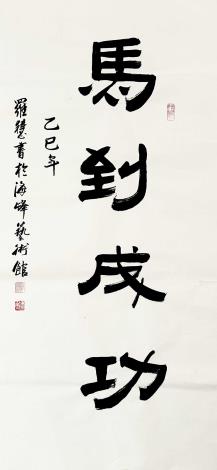 馬到成功
乙巳年
羅德書於海峰藝術館